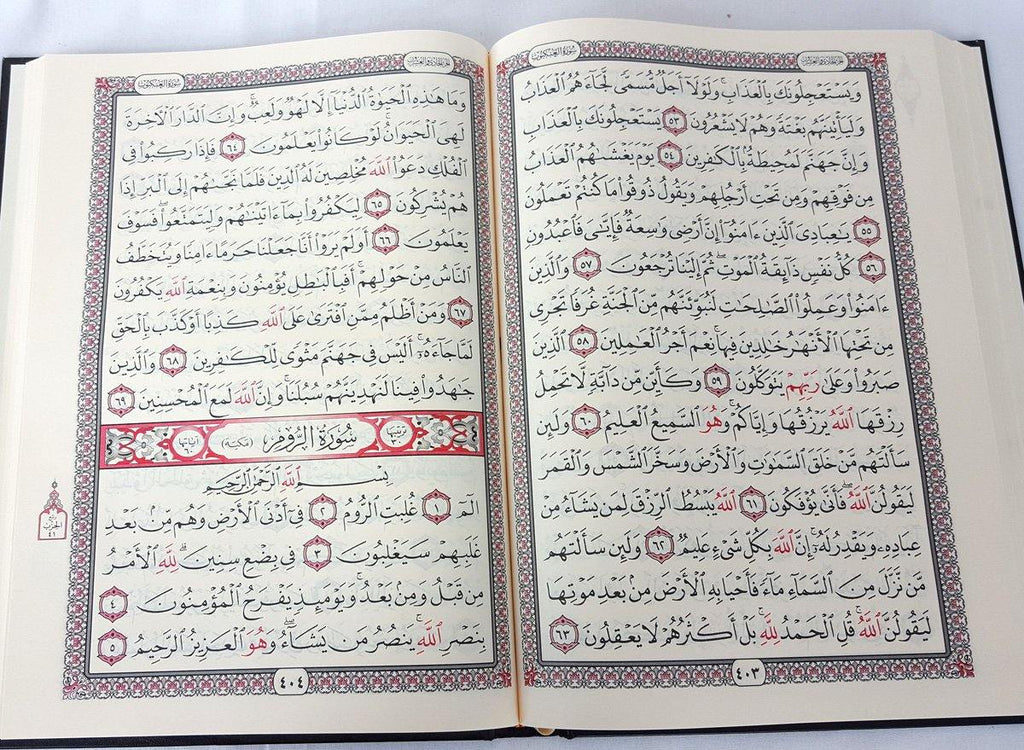 سورة العنكبوت
الجزء الحادي والعشرون
وَيَسْتَعْجِلُونَكَ بِالْعَذَابِ وَلَوْلَا أَجَلٌ مُّسَمًّى لَّجَاءَهُمُ الْعَذَابُ
وَلَيَأْتِيَنَّهُم بَغْتَةً وَهُمْ لَا يَشْعُرُونَ ٥٣ يَسْتَعْجِلُونَكَ بِالْعَذَابِ
وَإِنَّ جَهَنَّمَ لَمُحِيطَةٌ بِالْكَٰفِرِينَ ٥٤ يَوْمَ يَغْشَىٰهُمُ الْعَذَابُ
مِن فَوْقِهِمْ وَمِن تَحْتِ أَرْجُلِهِمْ وَيَقُولُ ذُوقُوا مَا كُنتُمْ تَعْمَلُونَ
٥٥ يَٰعِبَادِيَ الَّذِينَ ءَامَنُوا إِنَّ أَرْضِي وَٰسِعَةٌ فَإِيَّٰيَ فَاعْبُدُونِ
٥٦ كُلُّ نَفْسٍ ذَائِقَةُ الْمَوْتِ ثُمَّ إِلَيْنَا تُرْجَعُونَ ٥٧ وَالَّذِينَ
ءَامَنُوا وَعَمِلُوا الصَّٰلِحَٰتِ لَنُبَوِّئَنَّهُم مِّنَ الْجَنَّةِ غُرَفًا تَجْرِي
مِن تَحْتِهَا الْأَنْهَٰرُ خَٰلِدِينَ فِيهَا نِعْمَ أَجْرُ الْعَٰمِلِينَ ٥٨ الَّذِينَ
صَبَرُوا وَعَلَىٰ رَبِّهِمْ يَتَوَكَّلُونَ ٥٩ وَكَأَيِّن مِّن دَابَّةٍ لَّا تَحْمِلُ
رِزْقَهَا اللَّهُ يَرْزُقُهَا وَإِيَّاكُمْ وَهُوَ السَّمِيعُ الْعَلِيمُ ٦٠ وَلَئِن
سَأَلْتَهُم مَّنْ خَلَقَ السَّمَٰوَٰتِ وَالْأَرْضَ وَسَخَّرَ الشَّمْسَ وَالْقَمَرَ
لَيَقُولُنَّ اللَّهُ فَأَنَّىٰ يُؤْفَكُونَ ٦١ اللَّهُ يَبْسُطُ الرِّزْقَ لِمَن يَشَاءُ مِنْ
عِبَادِهِ وَيَقْدِرُ لَهُ إِنَّ اللَّهَ بِكُلِّ شَيْءٍ عَلِيمٌ ٦٢ وَلَئِن سَأَلْتَهُم
مَّن نَّزَّلَ مِنَ السَّمَاءِ مَاءً فَأَحْيَا بِهِ الْأَرْضَ مِن بَعْدِ مَوْتِهَا
لَيَقُولُنَّ اللَّهُ قُلِ الْحَمْدُ لِلَّهِ بَلْ أَكْثَرُهُمْ لَا يَعْقِلُونَ ٦٣
٤٠٣
الجزء الحادي والعشرون
سورة العنكبوت
وَمَا هَٰذِهِ الْحَيَوٰةُ الدُّنْيَا إِلَّا لَهْوٌ وَلَعِبٌ وَإِنَّ الدَّارَ الْآخِرَةَ
لَهِيَ الْحَيَوَانُ لَوْ كَانُوا يَعْلَمُونَ ٦٤ فَإِذَا رَكِبُوا فِي
الْفُلْكِ دَعَوُا اللَّهَ مُخْلِصِينَ لَهُ الدِّينَ فَلَمَّا نَجَّىٰهُمْ إِلَى الْبَرِّ إِذَا
هُمْ يُشْرِكُونَ ٦٥ لِيَكْفُرُوا بِمَا ءَاتَيْنَٰهُمْ وَلِيَتَمَتَّعُوا فَسَوْفَ
يَعْلَمُونَ ٦٦ أَوَلَمْ يَرَوْا أَنَّا جَعَلْنَا حَرَمًا ءَامِنًا وَيُتَخَطَّفُ
النَّاسُ مِنْ حَوْلِهِمْ أَفَبِالْبَٰطِلِ يُؤْمِنُونَ وَبِنِعْمَةِ اللَّهِ يَكْفُرُونَ
٦٧ وَمَنْ أَظْلَمُ مِمَّنِ افْتَرَىٰ عَلَى اللَّهِ كَذِبًا أَوْ كَذَّبَ بِالْحَقِّ
لَمَّا جَاءَهُ أَلَيْسَ فِي جَهَنَّمَ مَثْوًى لِّلْكَٰفِرِينَ ٦٨ وَالَّذِينَ
جَٰهَدُوا فِينَا لَنَهْدِيَنَّهُمْ سُبُلَنَا وَإِنَّ اللَّهَ لَمَعَ الْمُحْسِنِينَ ٦٩
ترتيبها ٣٠ سُورَةُ الرُّومِ (مكية) آياتها ٦٠
بِسْمِ اللَّهِ الرَّحْمَٰنِ الرَّحِيمِ
الٓمٓ ١ غُلِبَتِ الرُّومُ ٢ فِي أَدْنَى الْأَرْضِ وَهُم مِّن بَعْدِ
غَلَبِهِمْ سَيَغْلِبُونَ ٣ فِي بِضْعِ سِنِينَ لِلَّهِ الْأَمْرُ
مِن قَبْلُ وَمِن بَعْدُ وَيَوْمَئِذٍ يَفْرَحُ الْمُؤْمِنُونَ ٤
بِنَصْرِ اللَّهِ يَنصُرُ مَن يَشَاءُ وَهُوَ الْعَزِيزُ الرَّحِيمُ ٥
٤٠٤
الحزب
٤١